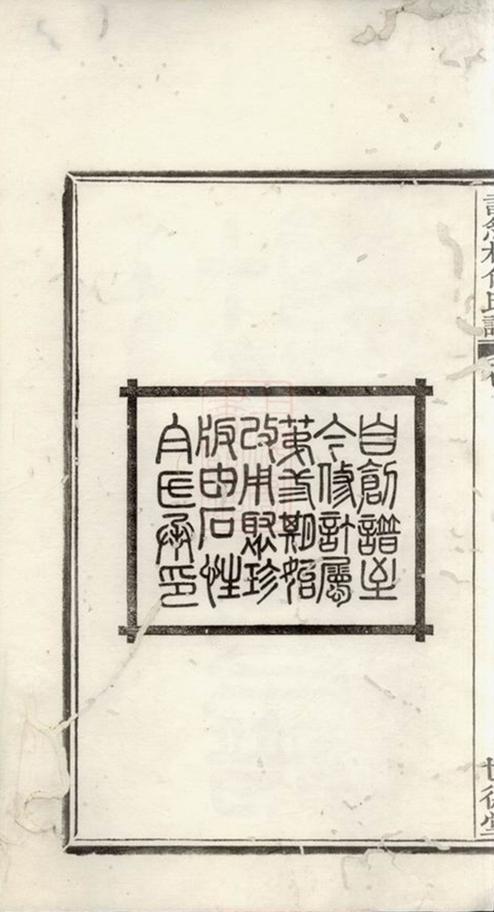 自創譜至
今修計屬
第期始
改用聚珍
版由石性
承印
氏譜
世德堂